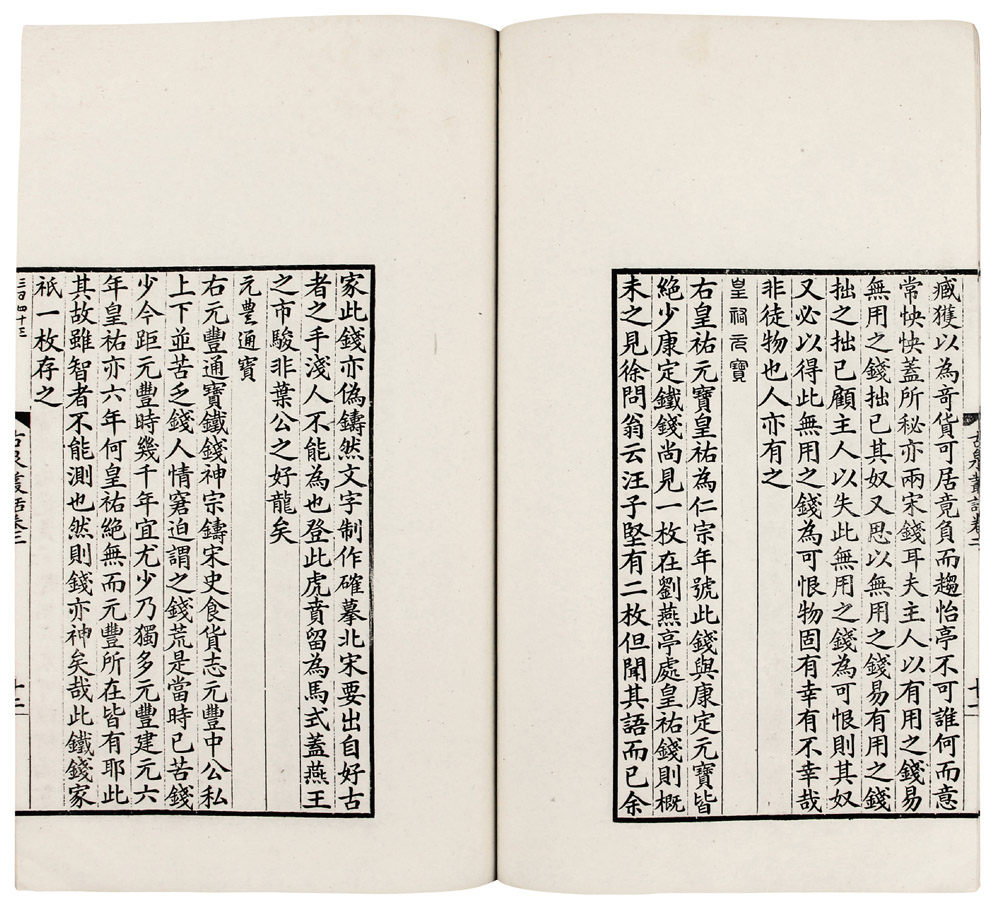 臧獲以為奇貨可居竟負而趨怡亭不可誰何而意
常怏怏蓋所秘亦兩宋錢耳夫主人以有用之錢易
無用之錢拙已其奴又思以無用之錢易有用之錢
拙之拙已顧主人以失此無用之錢為可恨則其奴
又必以得此無用之錢為可恨物固有幸有不幸哉
非徒物也人亦有之
皇祐元寶
右皇祐元寶皇祐為仁宗年號此錢與康定元寶皆
絕少康定鐵錢尚見一枚在劉燕亭處皇祐錢則概
未之見徐問翁云汪子堅有二枚但聞其語而已余
古泉叢話卷二
十二
家此錢亦偽鑄然文字制作確摹北宋要出自好古
者之手淺人不能為也登此虎賁留為馬式蓋燕王
之市駿非葉公之好龍矣
元豐通寶
右元豐通寶鐵錢神宗鑄宋史食貨志元豐中公私
上下並苦乏錢人情窘迫謂之錢荒是當時已苦錢
少今距元豐時幾千年宜尤少乃獨多元豐建元六
年皇祐亦六年何皇祐絕無而元豐所在皆有耶此
其故雖智者不能測也然則錢亦神矣哉此鐵錢家
祇一枚存之
古泉叢話卷二
十二